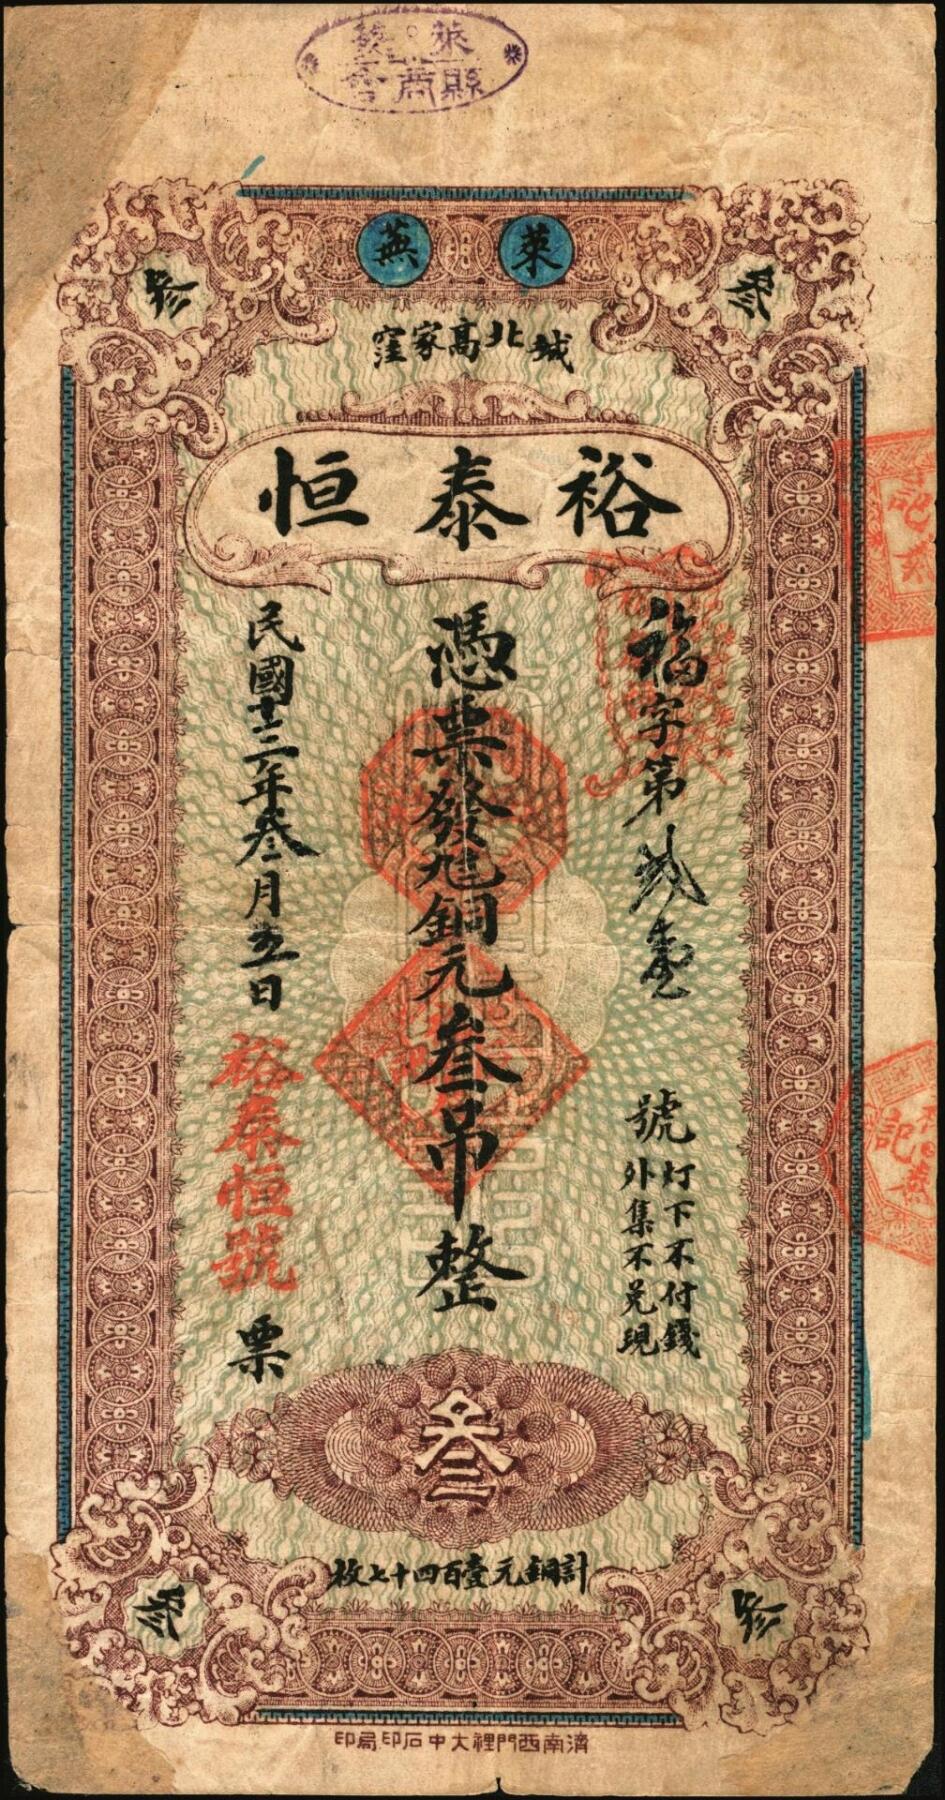 萊蕪
縣商
萊蕪
叁
叁
城北高家窪
裕泰恒
福字第
號
灯下不付錢
外集不兌現
憑票發兌銅元叁吊整
民國十二年叁月五日
裕泰恒號
票
叁
計銅元壹百四十七枚
叁
叁
濟南西門裡大中石印局印